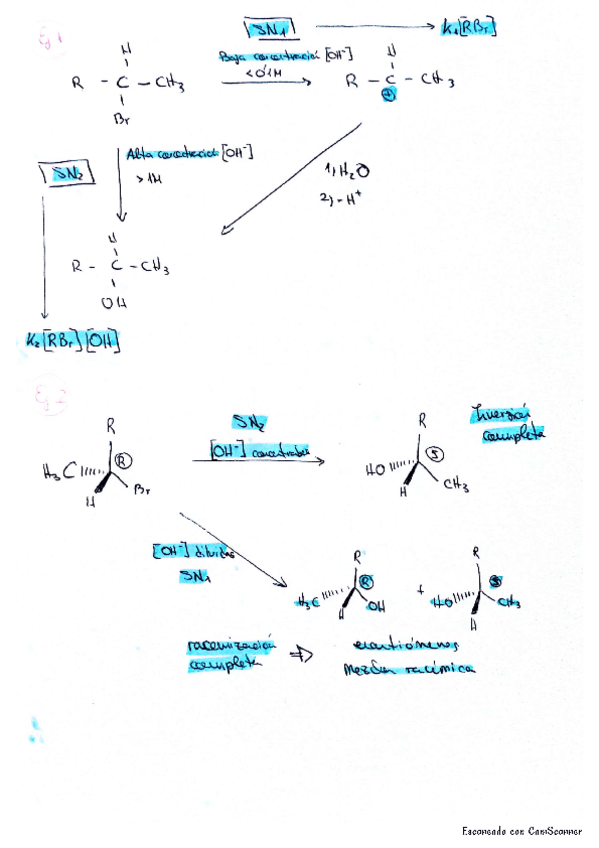 Ej 1
SN1 → K1[RBr]
Baja concentración [OH-]
< 0'1M
H
R - C - CH3
Br
H
R - C - CH3
+
SN2
Alta concentración [OH-]
> 1M
1) H2O
2) - H+
H
R - C - CH3
OH
K2[RBr][OH]
Ej 2
R
H3C
R
Br
H
SN2
[OH-] concentradas
R
S
HO
CH3
H
Inversión
completa
[OH-] diluidas
SN1
R
R
H3C
OH
H
+
R
S
HO
CH3
H
racemización
completa
⇒
enantiómeros
Mezcla racémica
Escaneado con CamScanner